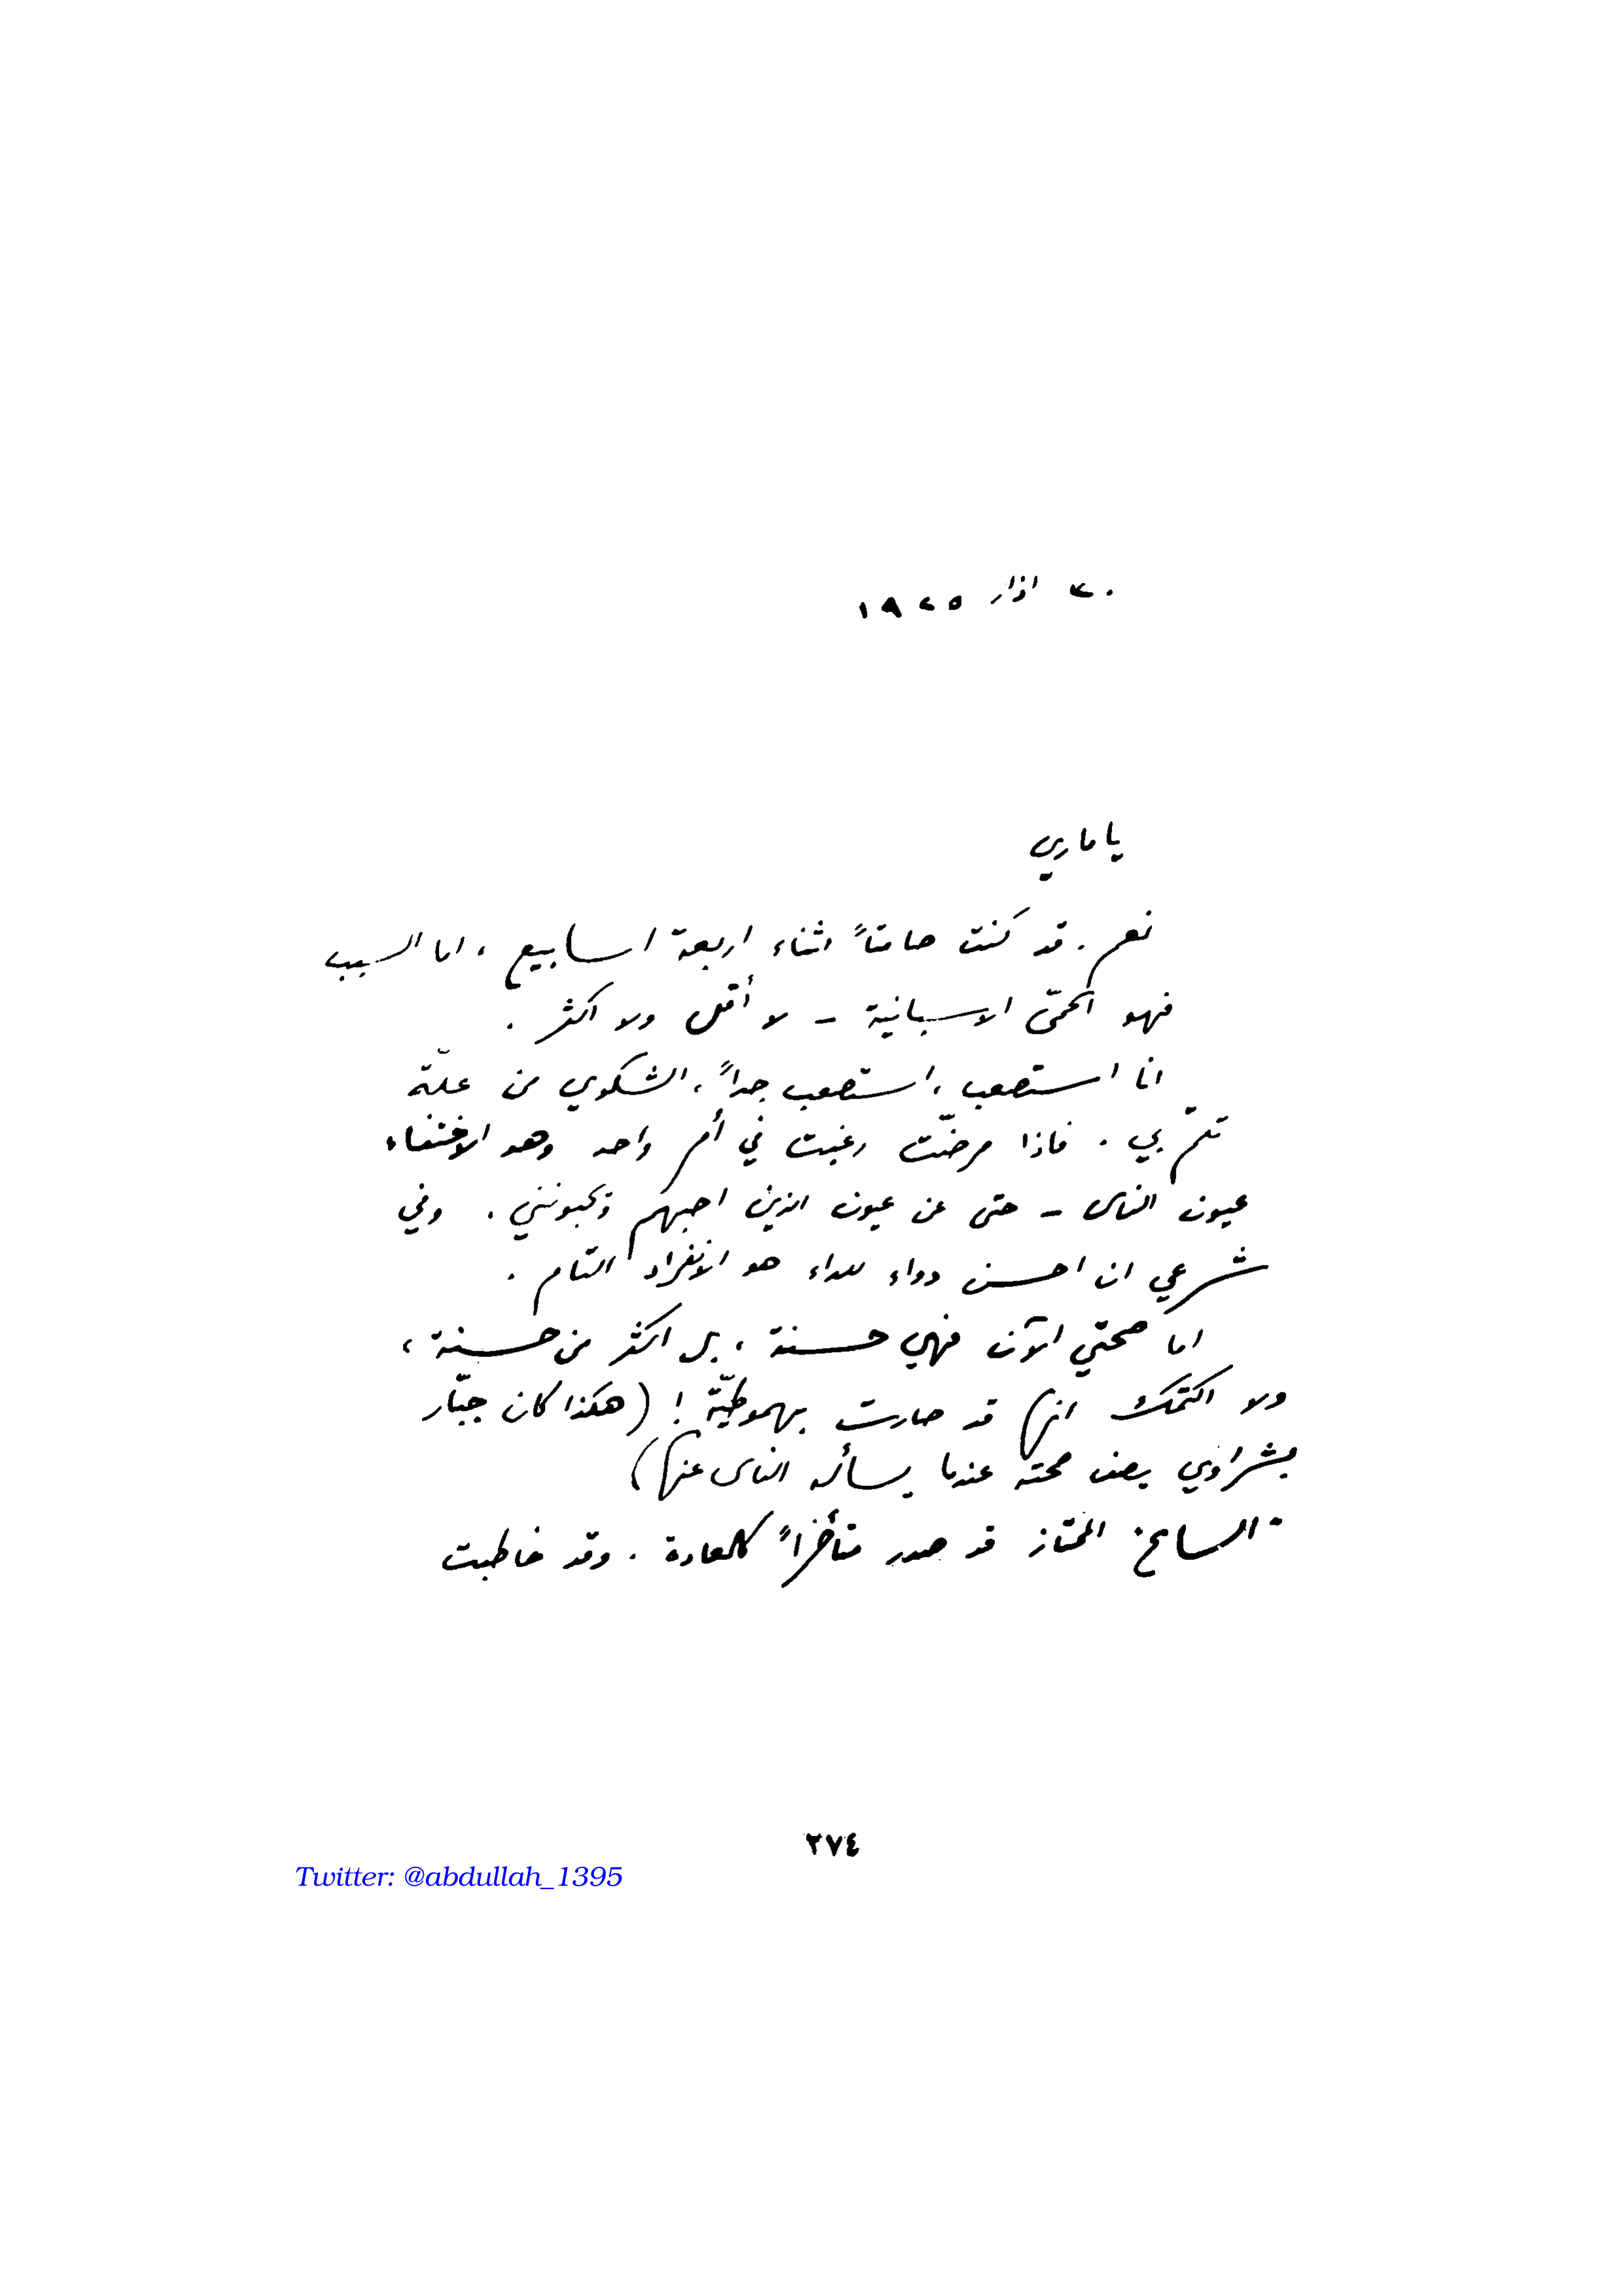 ٣٠ اذار ١٩٢٥
يا ماري
نعم. قد كنت صامتاً اثناء اربعة اسابيع، اما السبب
فهو الحمّى الاسبانية – لا أقل ولا اكثر.
انا استصعب، استصعب جداً، الشكوى من علّة
تلمّ بي. فاذا مرضت رغبت في أمر واحد وهو الاختفاء
عيون الناس – حتى عن عيون الذين احبهم ويحبونني. وفي
شرعي ان احسن دواء للداء هو الانفراد التام.
اما صحتي الآن فهي حسنة، بل اكثر من حسنة،
ولا اكتمك انها قد صارت بهموطيّة! (هكذا كان جبّار
بشراوي يصف صحته عندما يسأله الناس عنها)
"السايح" الممتاز قد صدر متأخراً كالعادة. وقد خاطبت
٢٧٤
Twitter: @abdullah_1395